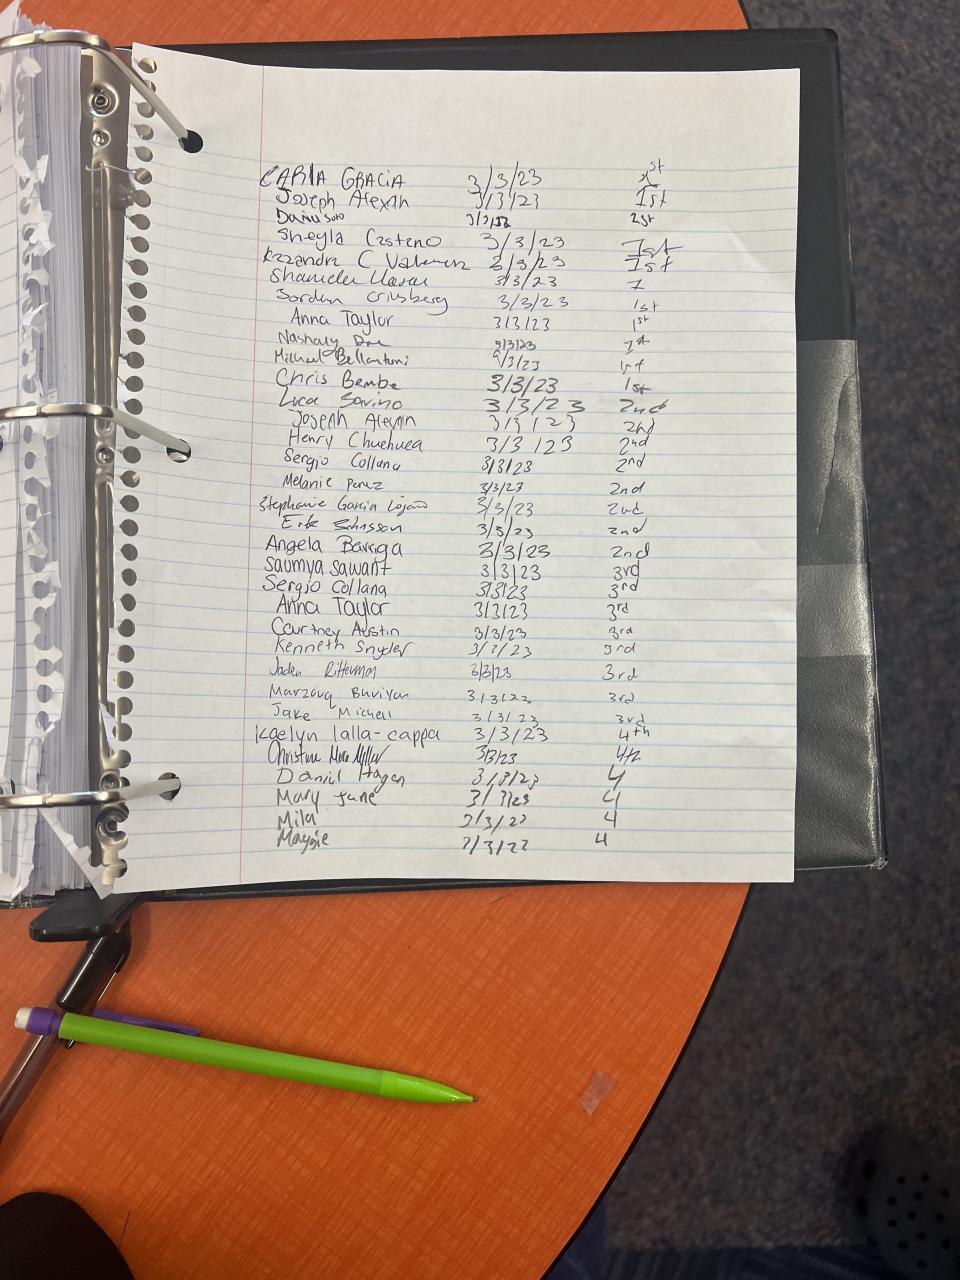 CARLA GRACIA 3/3/23 1st
Joseph Alexan 3/3/23 1st
3/3/23 1st
Sheyla Casteno 3/3/23 1st
Kazandra C 3/3/23 1st
3/3/23 1
Jordan Grinsberg 3/3/23 1st
Anna Taylor 3/3/23 1st
Nashaly 3/3/23 1st
Michael Bellantoni 3/3/23 1st
Chris Bembe 3/3/23 1st
Luca Savino 3/3/23 2nd
Joseph Alexan 3/3/23 2nd
Henry Chuehuea 3/3/23 2nd
Sergio Collana 3/3/23 2nd
Melanie Perez 3/3/23 2nd
Stephanie Garcia Lojano 3/3/23 2nd
Erik Johnsson 3/3/23 2nd
Angela Barriga 3/3/23 2nd
Saumya Sawant 3/3/23 3rd
Sergio Collana 3/3/23 3rd
Anna Taylor 3/3/23 3rd
Courtney Austin 3/3/23 3rd
Kenneth Snyder 3/3/23 3rd
Jaden Ritterman 3/3/23 3rd
Marzouq Buviyan 3/3/23 3rd
Jake Michell 3/3/23 3rd
Kaelyn lalla-cappa 3/3/23 4th
Christine 3/3/23 4th
Daniel Hagen 3/3/23 4
Mary Jane 3/3/23 4
Mila 3/3/23 4
Maggie 3/3/23 4